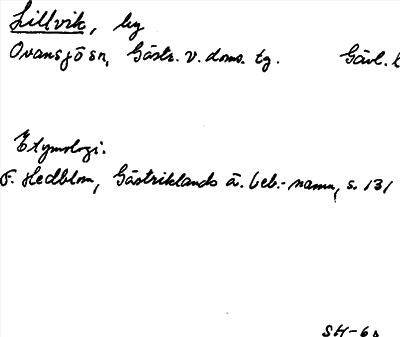 Lillvik, by
Ovansjö sn, Gästr. v. doms. tg. Gävl. l
Etymologi.
F. Hedblom, Gästriklands ä. beb.-namn, s. 131
SH-60